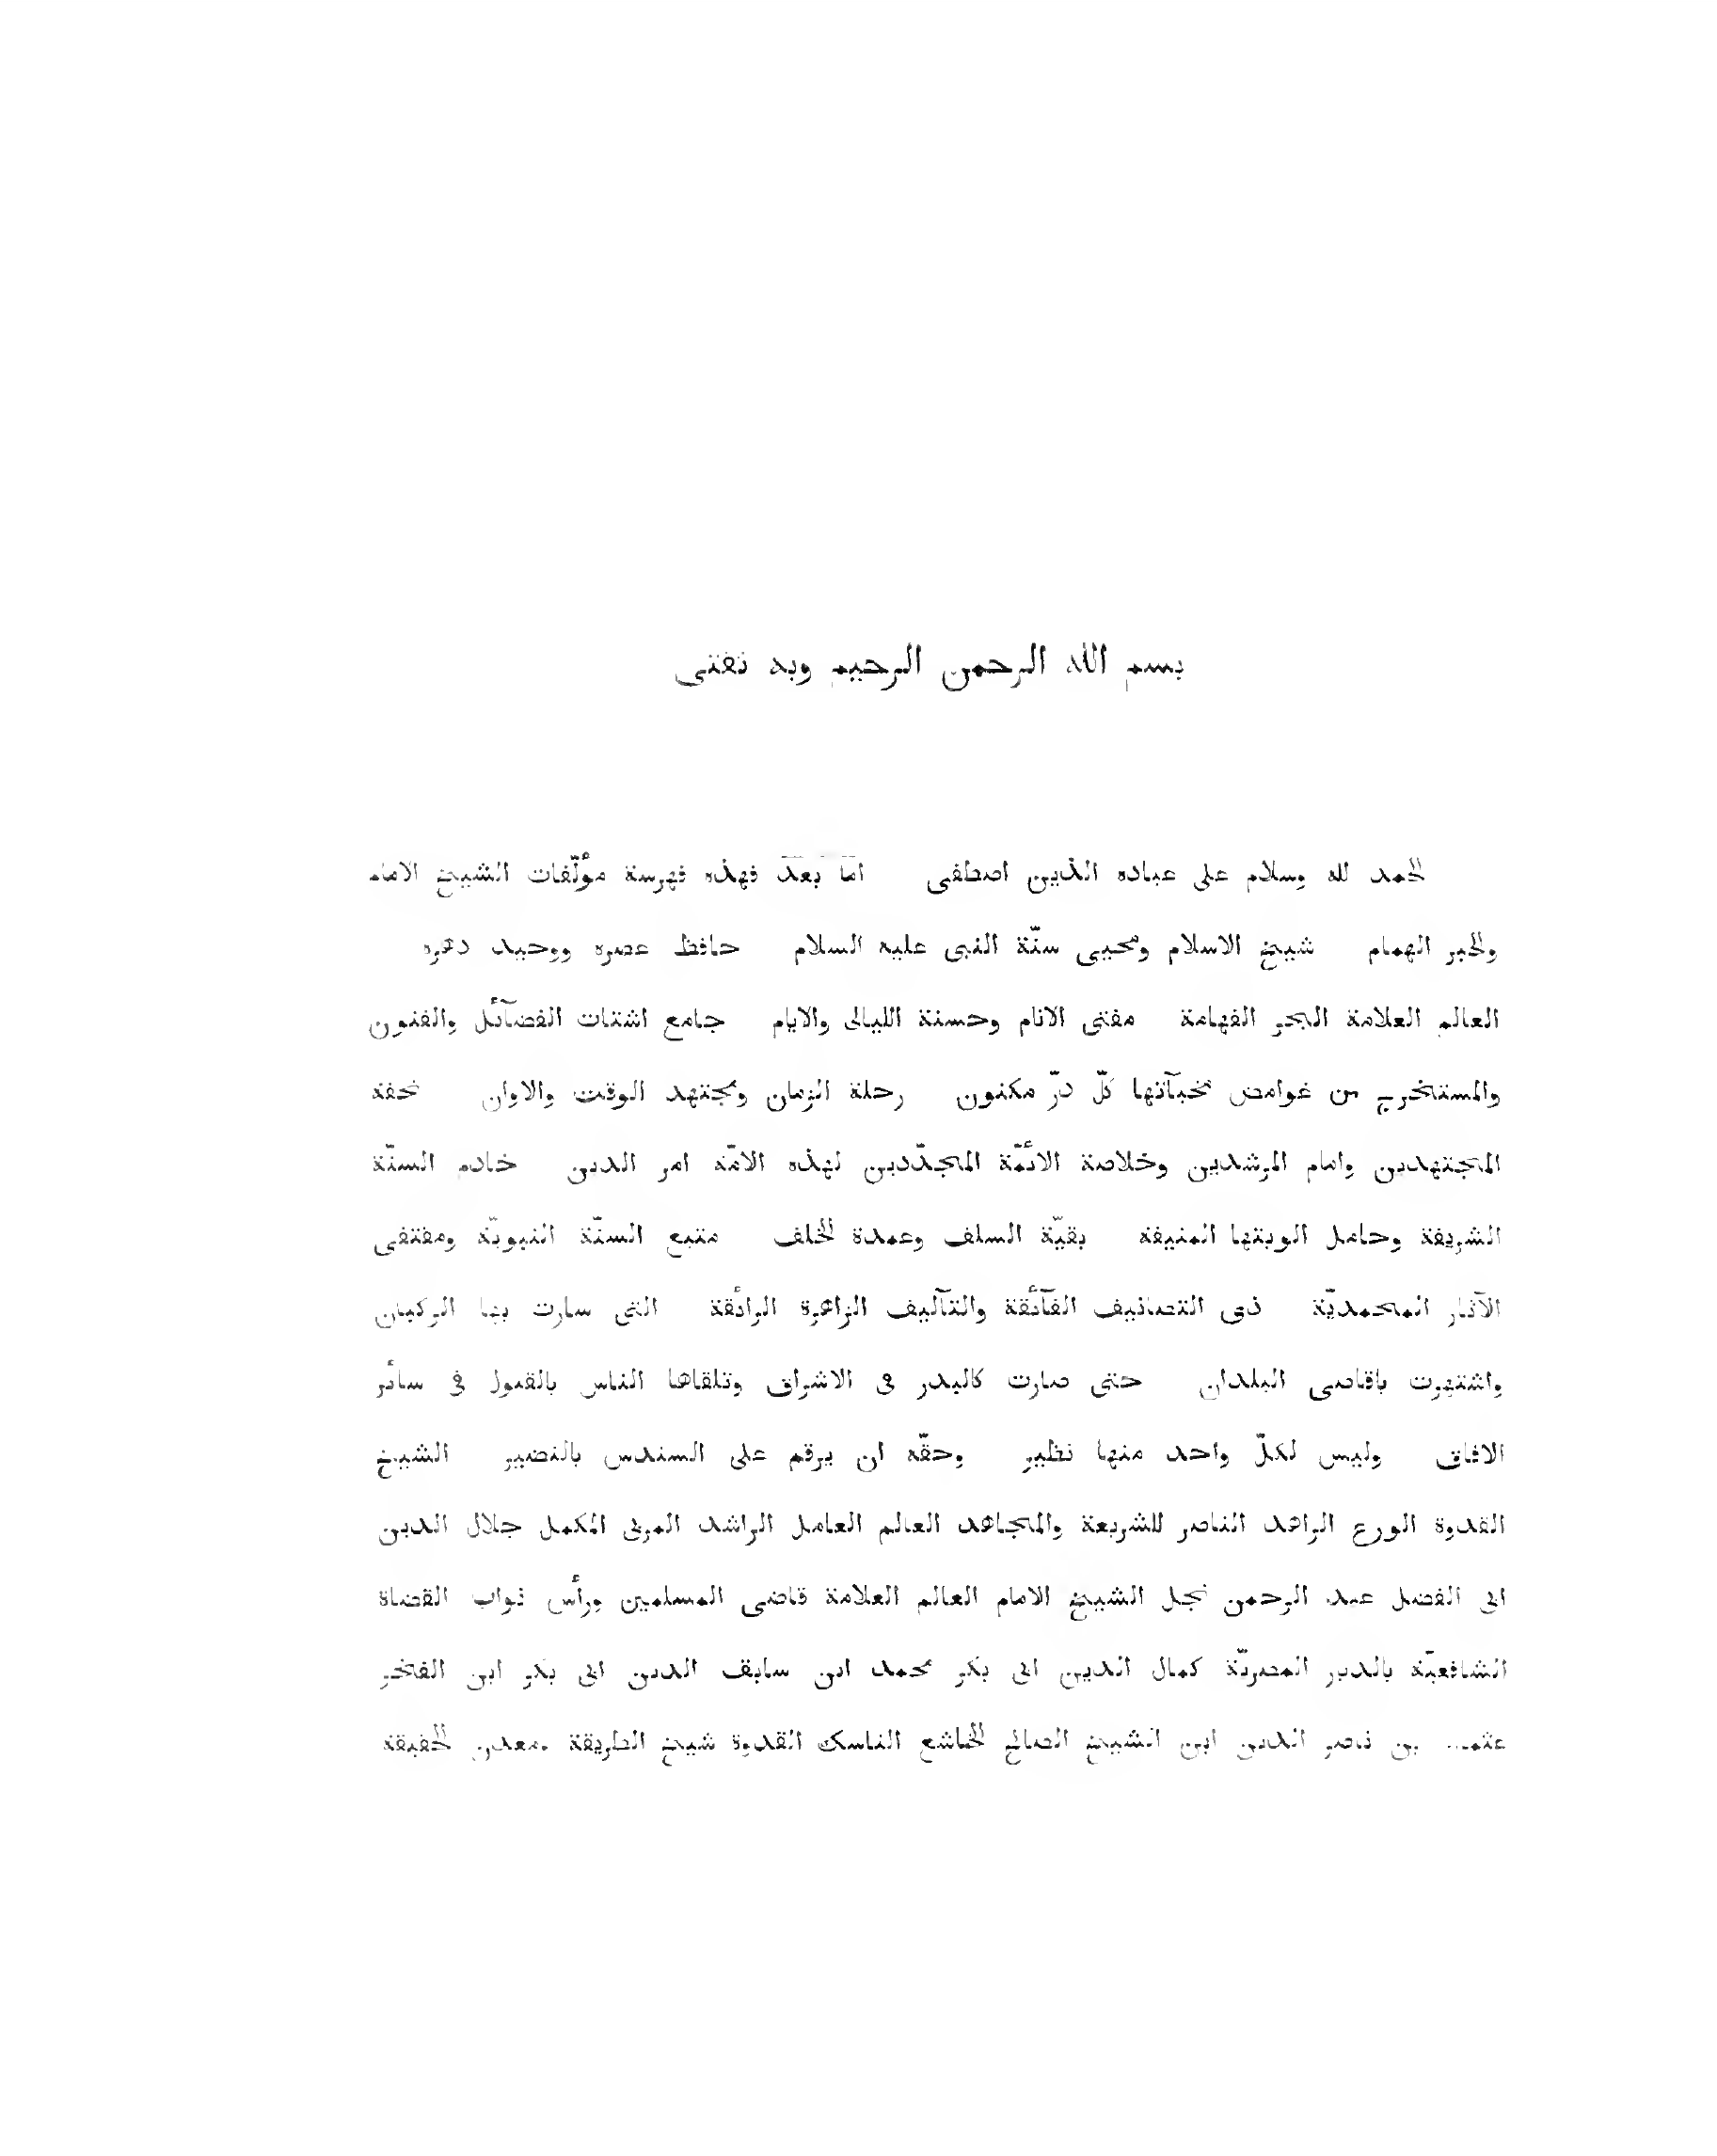 بسم الله الرحمن الرحيم وبه نفتى
الحمد لله وسلام على عباده الذين اصطفى امّا بعد فهذه فهرسة مؤلّفات الشيخ الامام
والحبر الهمام شيخ الاسلام ومحيى سنّة النبى عليه السلام حافظ عصره ووحيد دهره
العالم العلامة البحر الفهامة مفتى الانام وحسنة الليالى والايام جامع اشتات الفضآئل والفنون
والمستخرج من غوامض مخبآتها كلّ درّ مكنون رحلة الزمان ومجتهد الوقت والاوان تحفة
المجتهدين وامام المرشدين وخلاصة الائمّة المجدّدين لهذه الامّة امر الدين خادم السنّة
الشريفة وحامل الويتها المنيفة بقيّة السلف وعمدة الخلف متبع السنّة النبويّة ومقتفى
الآثار المحمديّة ذى التصانيف الفآئقة والتآليف الزاهرة الرائقة التى سارت بها الركبان
واشتهرت باقاصى البلدان حتى صارت كالبدر فى الاشراق وتلقاها الناس بالقبول فى سائر
الافاق وليس لكلّ واحد منها نظير وحقّه ان يرقم على السندس بالنضير الشيخ
القدوة الورع الزاهد الناصر للشريعة والمجاهد العالم العامل الراشد المربى المكمل جلال الدين
ابى الفضل عبد الرحمن نجل الشيخ الامام العالم العلامة قاضى المسلمين ورأس نواب القضاة
الشافعيّة بالديار المصريّة كمال الدين ابى بكر محمد ابن سابق الدين ابى بكر ابن الفخر
عثمان بن ناصر الدين ابن الشيخ الصالح الخاشع الناسك القدوة شيخ الطريقة ومعدن الحقيقة